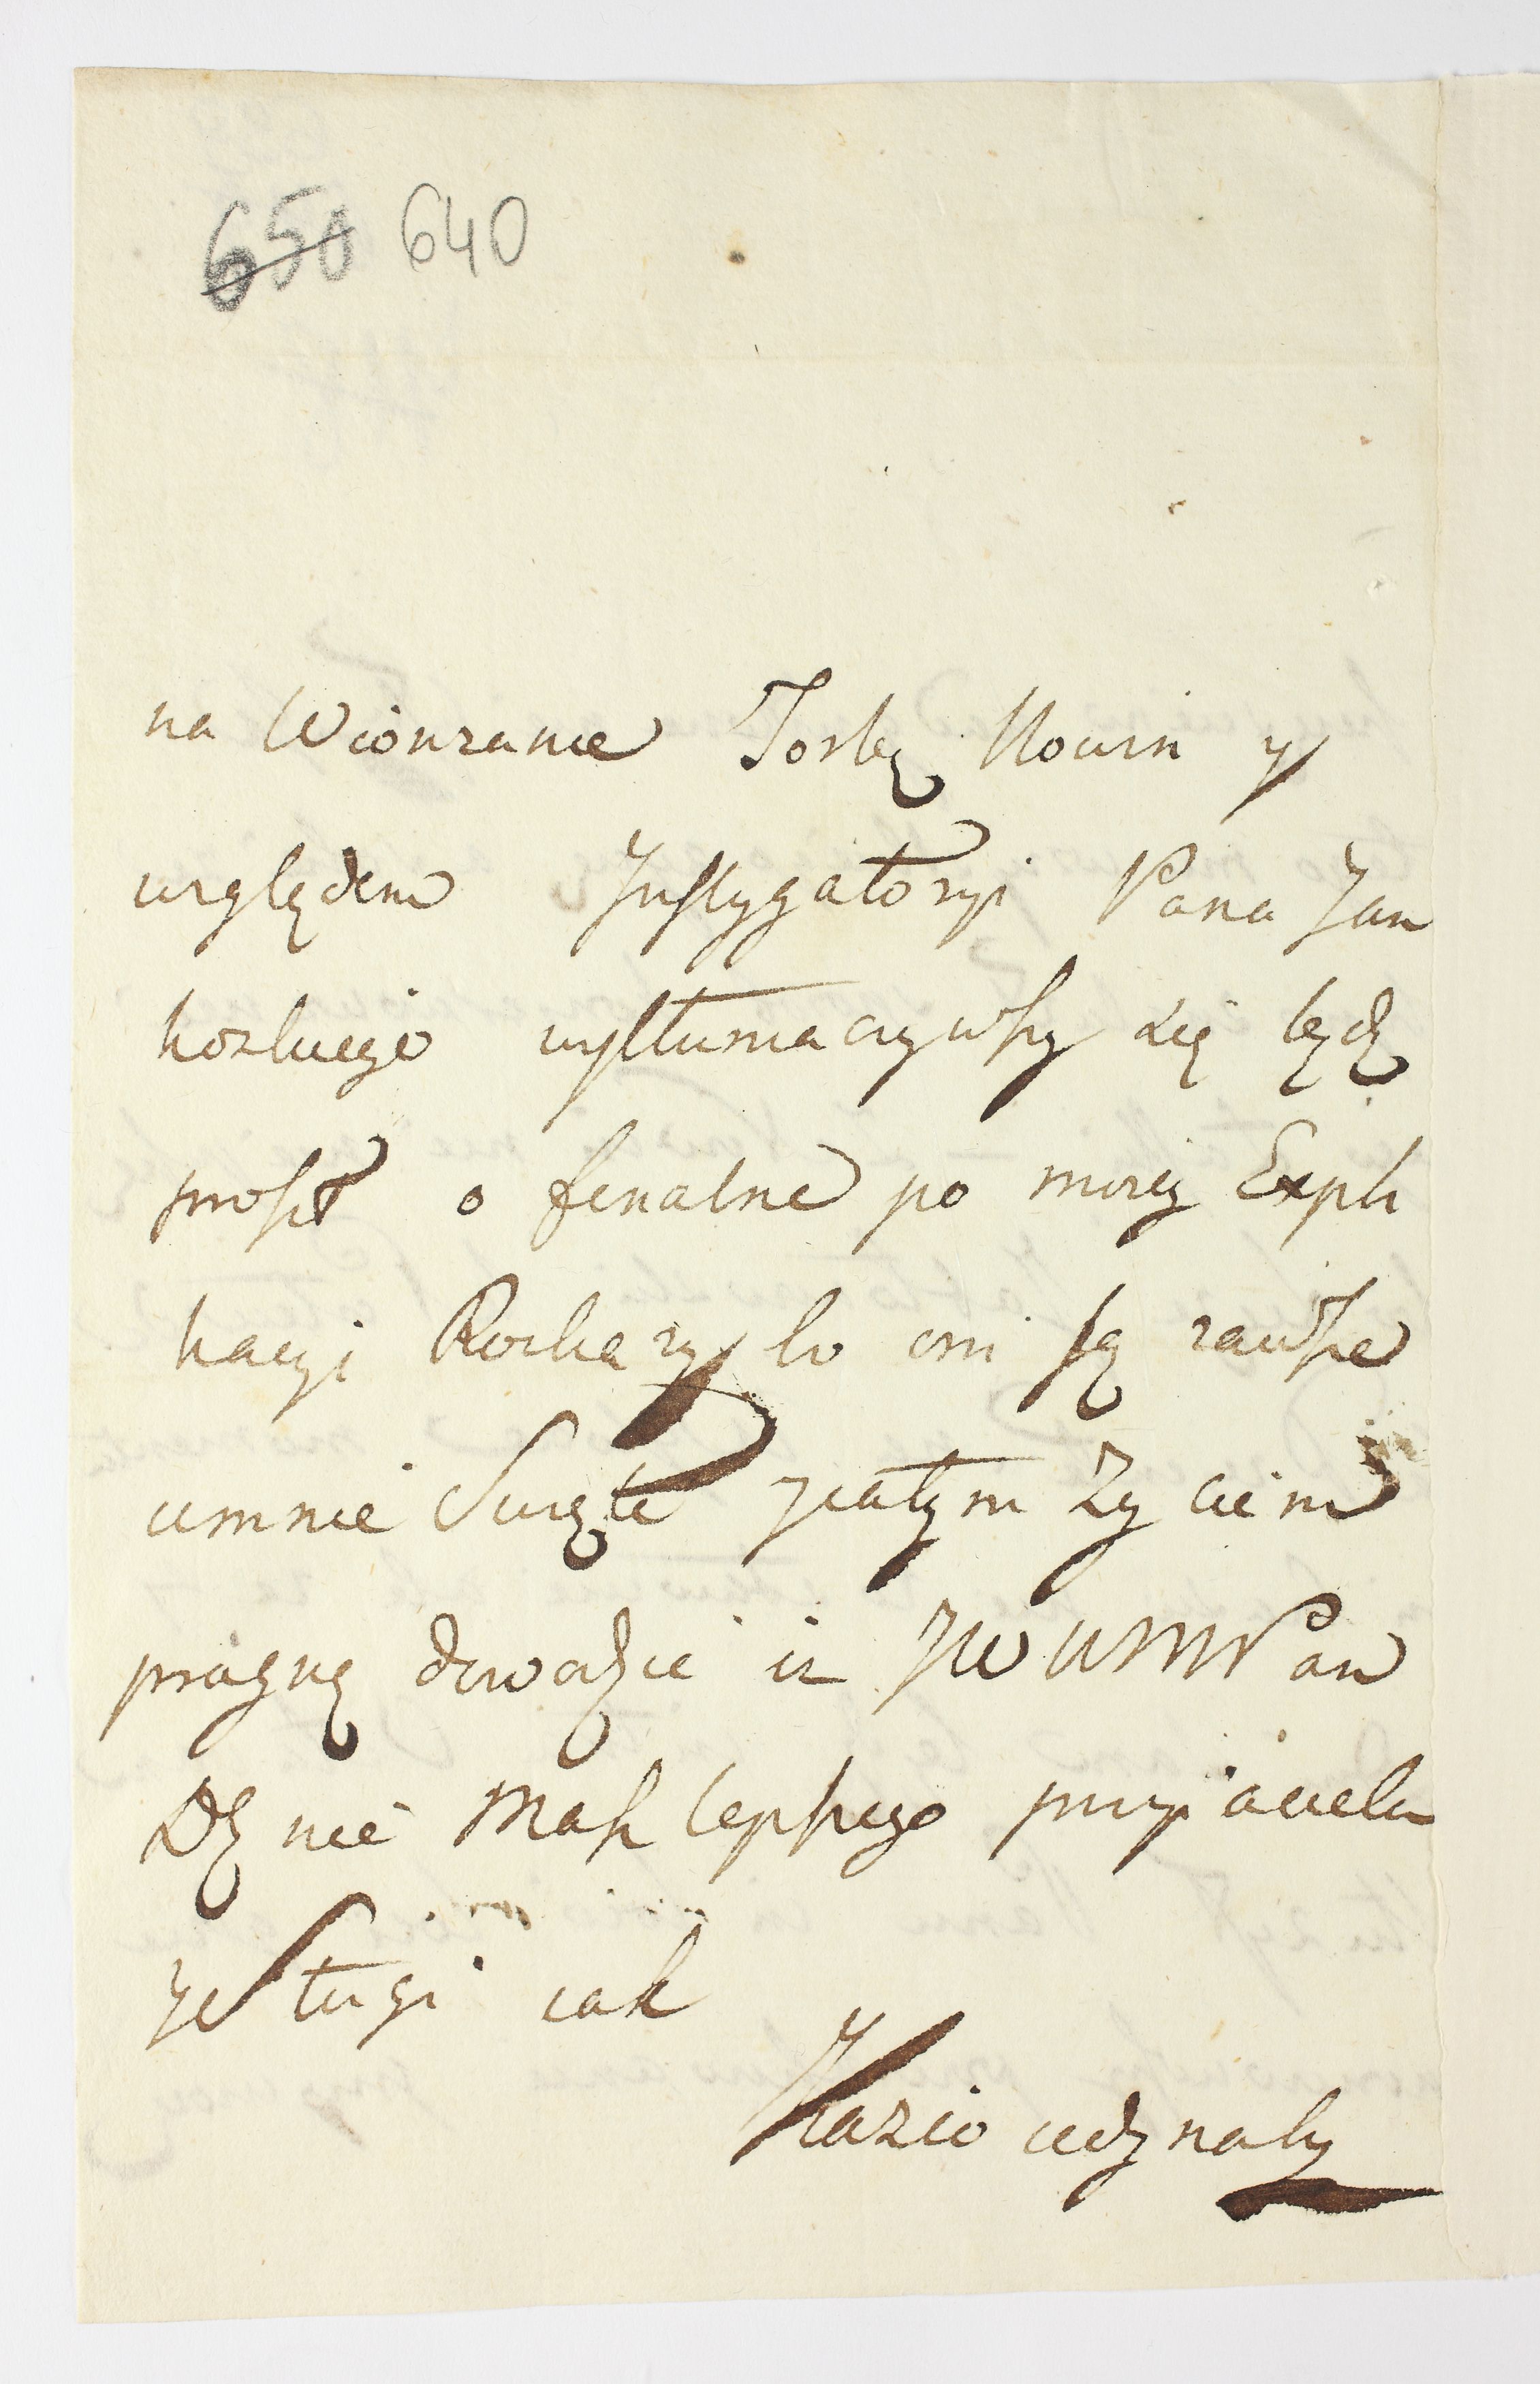 650 640
na Wionzanie Torbę Nowin y
względem Instygatoryi Pana Jan
kowskiego wytłumaczywszy się będę
prosił o finalne po moiey Expli
kacyi Rozkazy bo oni są zawsze
umnie Swięte ycałym Zyciem
pragnę dowodzić iż JWWMPan
Dz nie Masz lepszego przyiaciela
ysługi iak
Kazio iedynaky